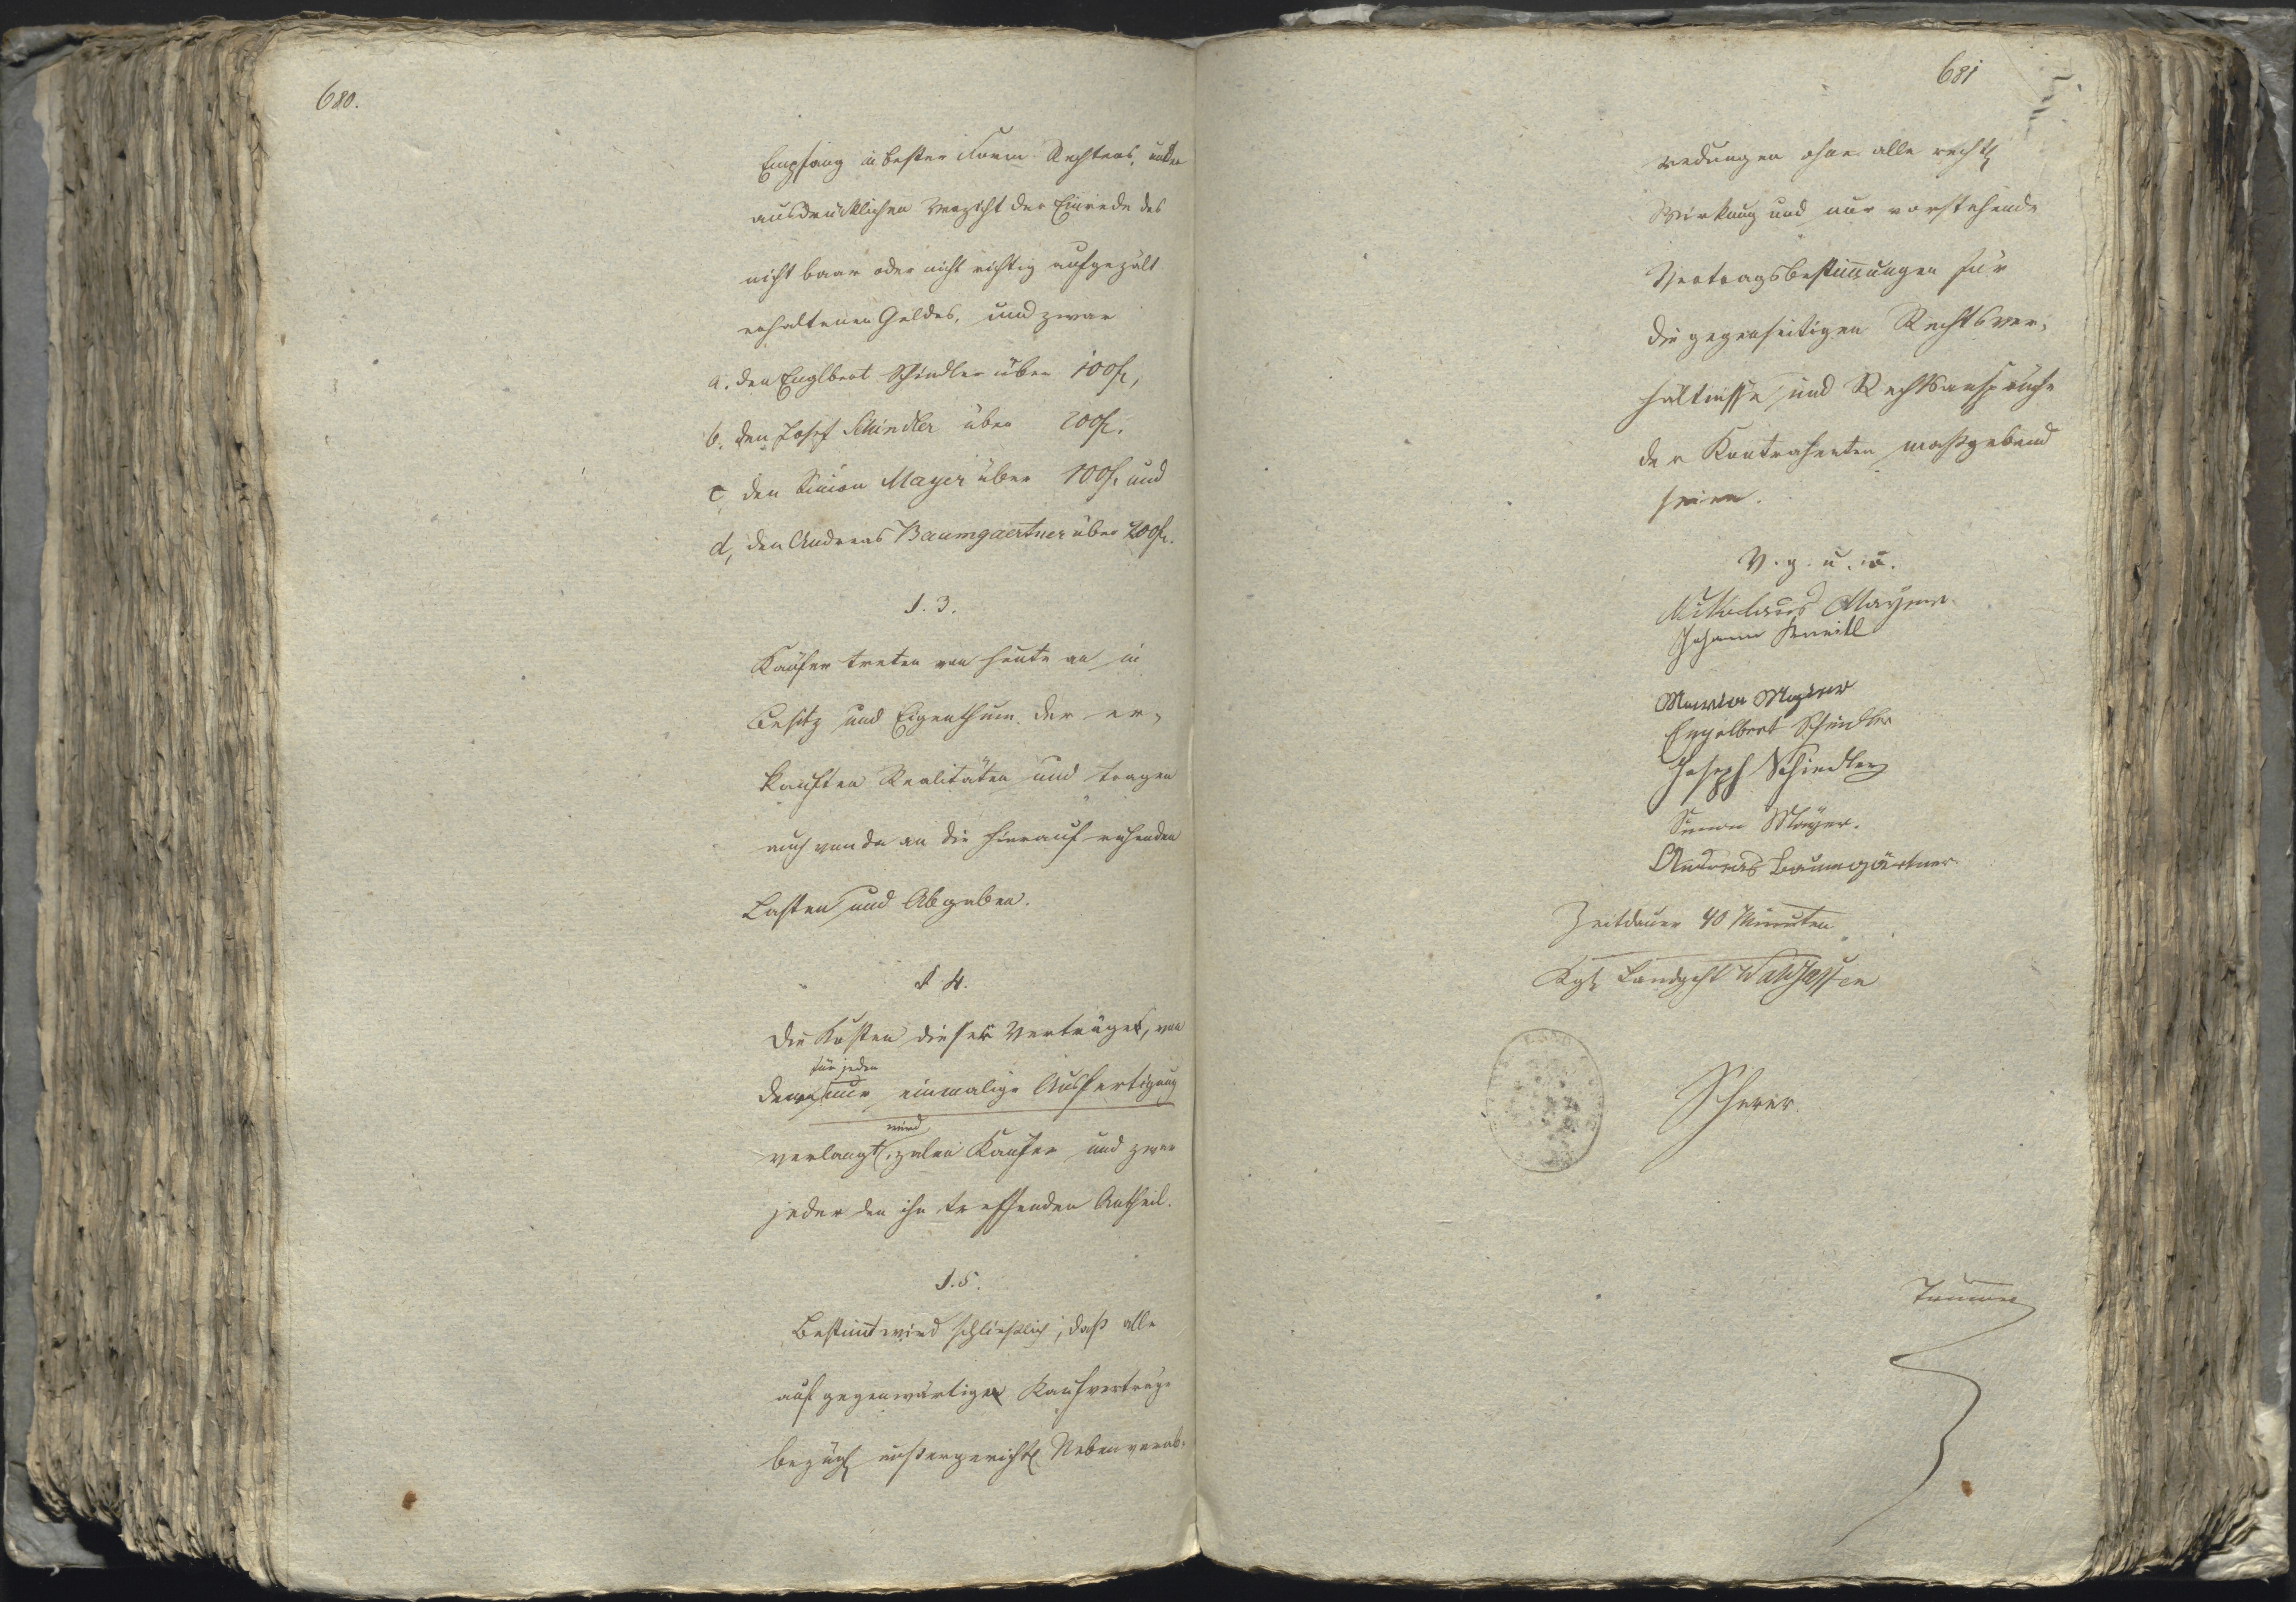 680.
Empfang in bester Form Rechtens, unter
ausdrücklichen Verzicht der Einrede des
nicht baar oder nicht richtig aufgezält
erhaltenen Geldes, und zwar
a. den Englbert Schindler über 100 f.,
b. den Josef Schindler über 200 f.
c, den Simon Mayer über 100 f. und
d, den Andreas Baumgaertner über 200 f.
§. 3.
Käufer treten von heute an in
Besitz und Eigenthum der er-
kauften Realitäten und tragen
auch von da an die hierauf ruhenden
Lasten und Abgaben.
§ 4.
Die Kosten dieser Verträge, von
für jeden
denen nur einmalige Ausfertigung
wird
verlangt, zalen Käufer und zwar
jeder den ihn treffenden Antheil.
§. 5.
Bestimt wird schließlich, daß alle
auf gegenwärtige Kaufverträge
bezügl außergerichtl Nebenverab-
681
redungen ohne alle rechtl
Wirkung und nur vorstehende
Vertragsbestimungen für
die gegenseitigen Rechtsver-
hältnisse und Rechtsansprüche
der Kontrahenten maßgebend
seien.
V. g. u. u.
Nikolaus Mayer
Johann
Maria Mayer
Engelbert Schindler
Joseph Schindler
Simon Mayer.
Andreas Baumgärtner
Zeitdauer 40 Minuten
Kgl Landgcht Waldsassen
Scherer